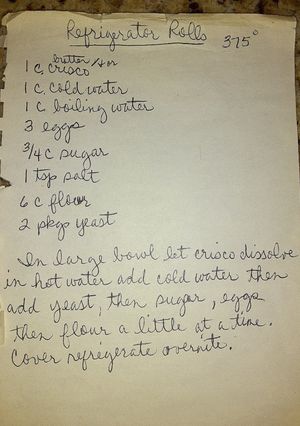 Refrigerator Rolls
375°
butter
1 c. crisco
1 c. cold water
1 c. boiling water
3 eggs
3/4 c sugar
1 tsp salt
6 c flour
2 pkgs yeast
In large bowl let crisco dissolve
in hot water add cold water then
add yeast, then sugar, eggs
then flour a little at a time.
Cover refrigerate overnite.